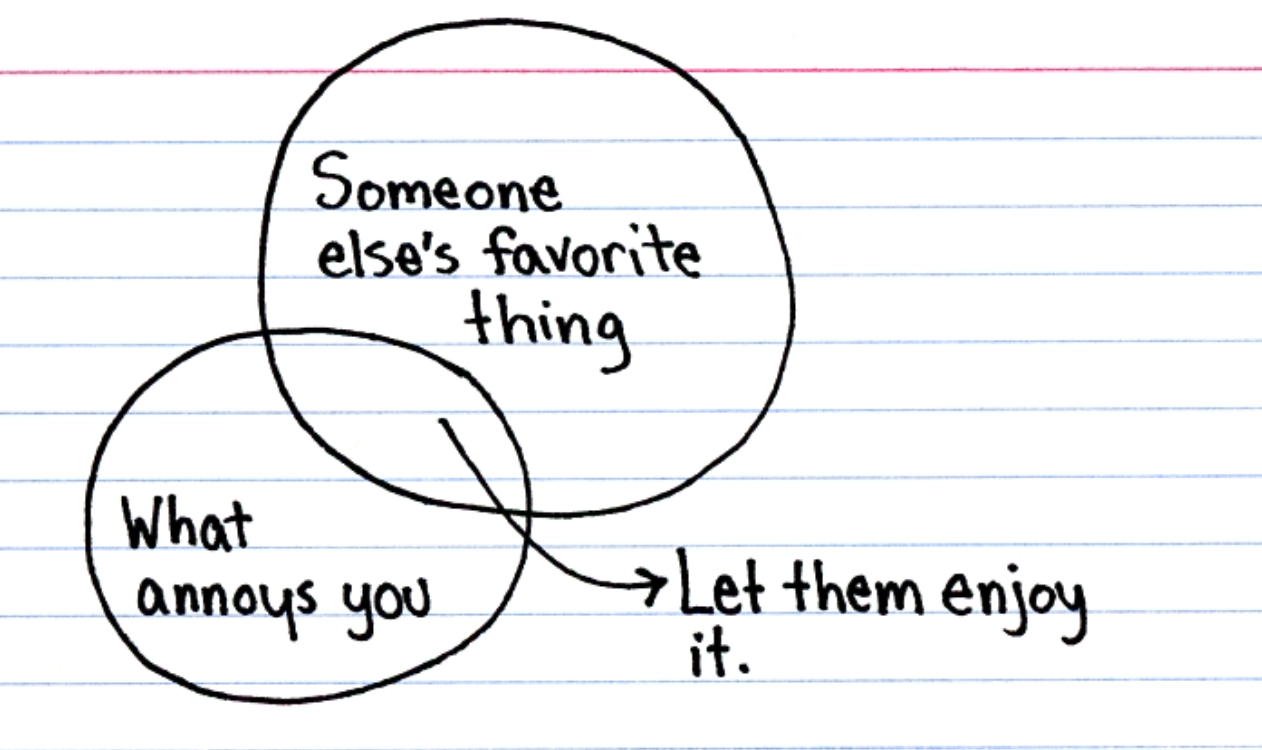 Someone
else's favorite
thing
What
annoys you
Let them enjoy
it.